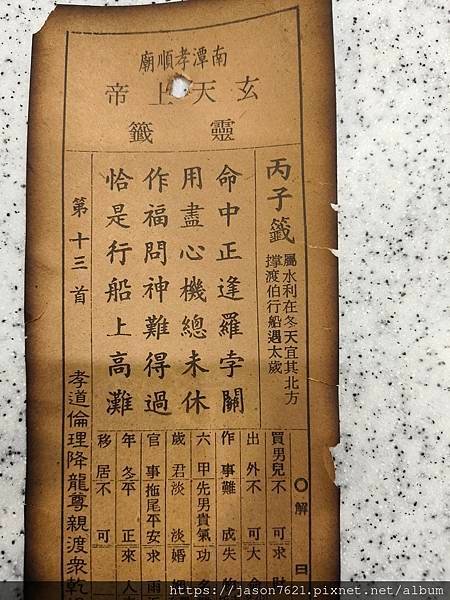 南潭孝順廟
玄天上帝
靈籤
丙子籤
屬水利在冬天宜其北方
撑渡伯行船遇太歲
命中正逢羅孛關
用盡心機總未休
作福問神難得過
恰是行船上高灘
第十三首
孝道倫理降龍尊親渡衆乾
〇解曰
買男兒不可求財
出外不可大命
作事難成失物
六甲先男貴氣功名
歲君淡淡婚姻
官事拖尾平安求雨
年冬平正來人
移居不可
https://jason7621.pixnet.net/album